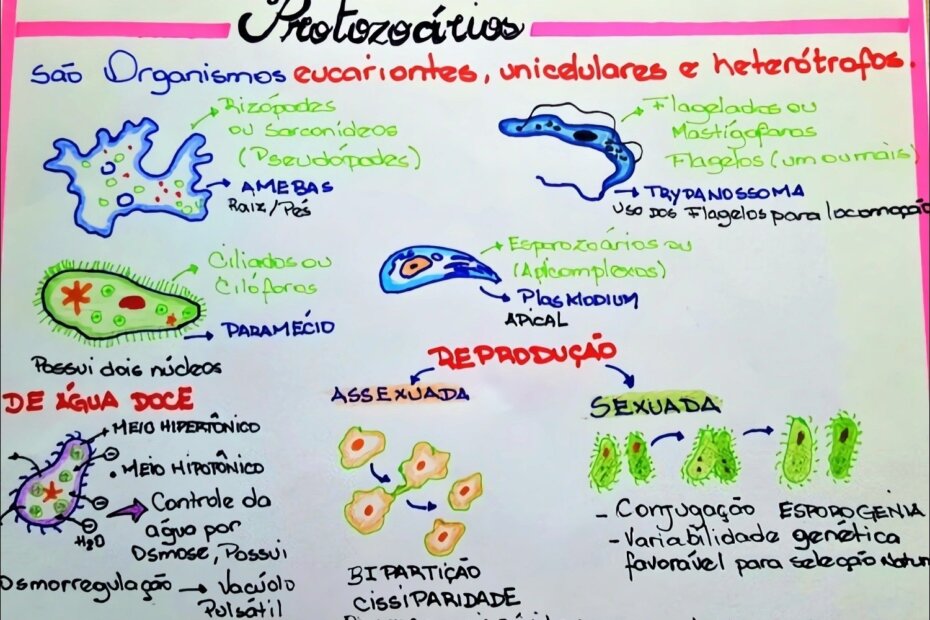 Protozoários
São Organismos eucariontes, unicelulares e heterótrofos.
Rizópodes
ou Sarconídeos
(Pseudópodes)
AMEBAS
Raiz/Pés
Flagelados ou
Mastigóforos
Flagelos (um ou mais)
TRYPANOSSOMA
USO DOS Flagelos para locomoção
Ciliados ou
Cilóforos
PARAMÉCIO
Possui dois núcleos
Esporozoários ou
(Apicomplexos)
PLASMODIUM
APICAL
REPRODUÇÃO
ASSEXUADA
SEXUADA
DE ÁGUA DOCE
MEIO HIPERTÔNICO
MEIO HIPOTÔNICO
H2O
Controle da
água por
Osmose, Possui
Osmorregulação → Vacúolo
Pulsátil
BIPARTIÇÃO
CISSIPARIDADE
- Conjugação ESPOROGENIA
- Variabilidade genética
favorável para seleção Natur